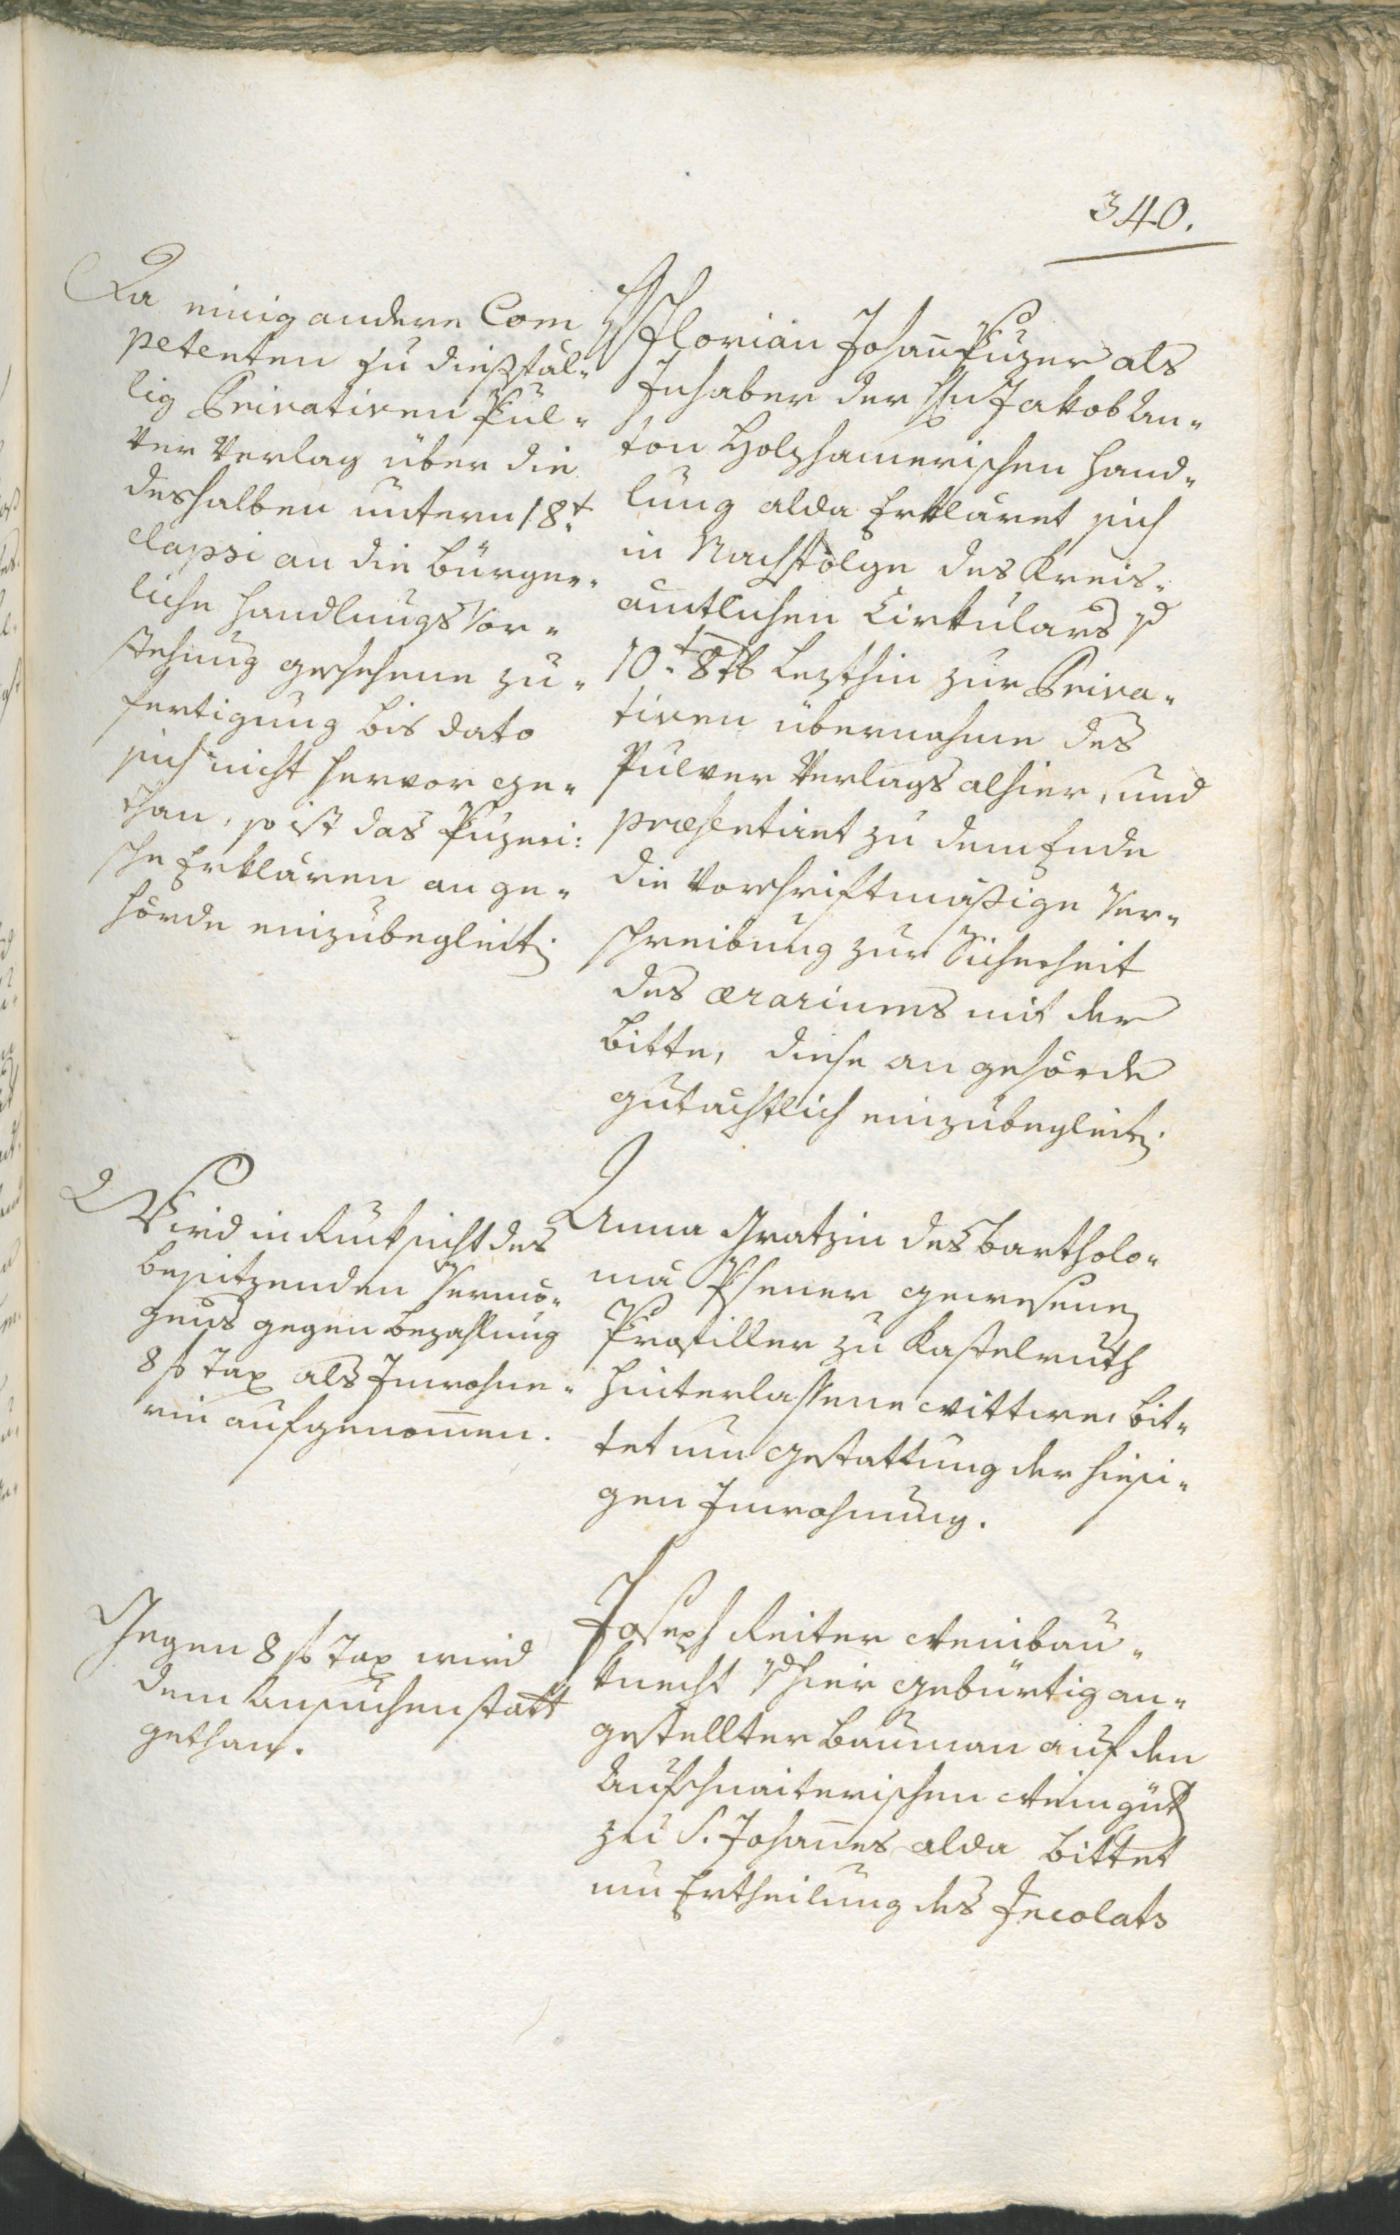 340.
Da einig andere Com
petenten zu diesfäl¬
lig Privativen Pul¬
ver Verlag über die
deshalben untern 18t.
elapsi an die bürger¬
liche Handlungs Vor¬
stehung geschehene zu¬
fertigung bis dato
sich nicht hervor ge¬
than, so ist das Puzeri:
sche Erklären an ge¬
hörde einzubegleit.
Florian Johann Puzer als
Inhaber der Jakob An¬
ton Holzhamerischen Hand¬
lung alda Erkläret sich
in Nachfolge des Kreis¬
ämtlichen Cirkulars
10t. 8tb Lezthin zur Priva¬
tiven übernahme des
Pulver Verlags alhier, und
præsentiret zu dem Ende
die Vorschriftmäßige Ver¬
schreibung zur Sicherheit
des ærariums mit der
bitte, diese an gehörde
gutächtlich einzubegleit.
Wird in Rücksicht des
besitzenden Vermö¬
gens gegen bezahlung
8 f Tax als Inwohne¬
rin aufgenommen.
Anna Gratzin des Bartholo¬
mä gewesenen
zu Kastelruth
hinterlassene Wittwe, bit¬
tet um Gestattung der hiesi¬
gen Inwohnung.
Gegen 8 f Tax wird
dem Ansuchen statt
gethan.
Joseph Reiter Weinbau¬
knecht v hier gebürtig an¬
gestellter Bauman auf den
Aufschnaiterischen Weingut
zu S. Johannes alda bittet
um Ertheilung des Incolats